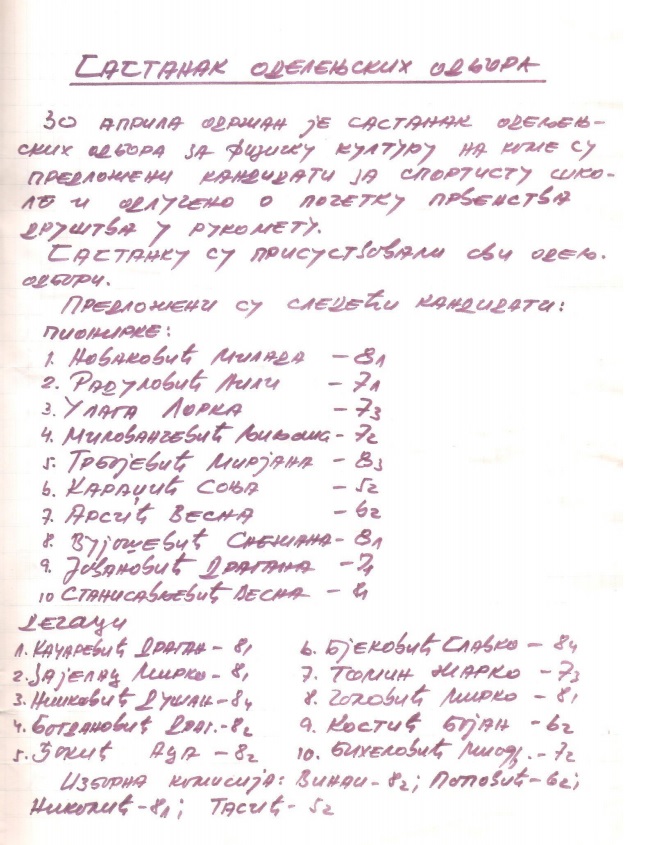 САСТАНАК ОДЕЛЕЊСКИХ ОДБОРА
30 АПРИЛА ОДРЖАН ЈЕ САСТАНАК ОДЕЉЕЊ-
СКИХ ОДБОРА ЗА ФИЗИЧКУ КУЛТУРУ НА КОМЕ СУ
ПРЕДЛОЖЕНИ КАНДИДАТИ ЗА СПОРТИСТУ ШКО-
ЛЕ И ОДЛУЧЕНО О ПОЧЕТКУ ПРВЕНСТВА
ДРУШТВА У РУКОМЕТУ.
САСТАНКУ СУ ПРИСУСТВОВАЛИ СВИ ОДЕЉ.
ОДБОРИ.
ПРЕДЛОЖЕНИ СУ СЛЕДЕЋИ КАНДИДАТИ:
ПИОНИРКЕ:
1. НОВАКОВИЋ МИЛАДА – 81
2. РАДУЛОВИЋ ЛИЛИ – 71
3. УЛАГА ЛОРКА – 73
4. МИЛОВАНЧЕВИЋ – 72
5. ТРБОЈЕВИЋ МИРЈАНА – 83
6. КАРАЏИЋ СОЊА – 52
7. АРСИЋ ВЕСНА – 62
8. ВУЈОШЕВИЋ СНЕЖАНА – 81
9. ЈОВАНОВИЋ ДРАГАНА –
10 СТАНИСАВЉЕВИЋ ВЕСНА –
ДЕЧАЦИ
1. КАЧАРЕВИЋ ДРАГАН – 81
2. ЗАЈЕЛАЦ МИРКО – 81
3. НИШКОВИЋ ДУШАН – 84
4. БОГДАНОВИЋ ДРАГ. – 82
5. ЂОКИЋ АЦА – 82
6. БЈЕКОВИЋ СЛАВКО – 84
7. ТОМИН ЖАРКО – 73
8. МИРКО – 81
9. КОСТИЋ БОЈАН – 62
10. МИОДР. – 72
ИЗБОРНА КОМИСИЈА: ВИНАИ – 82; ПОПОВИЋ – 62;
НИКОЛИЋ – 81; ТАСИЋ – 52